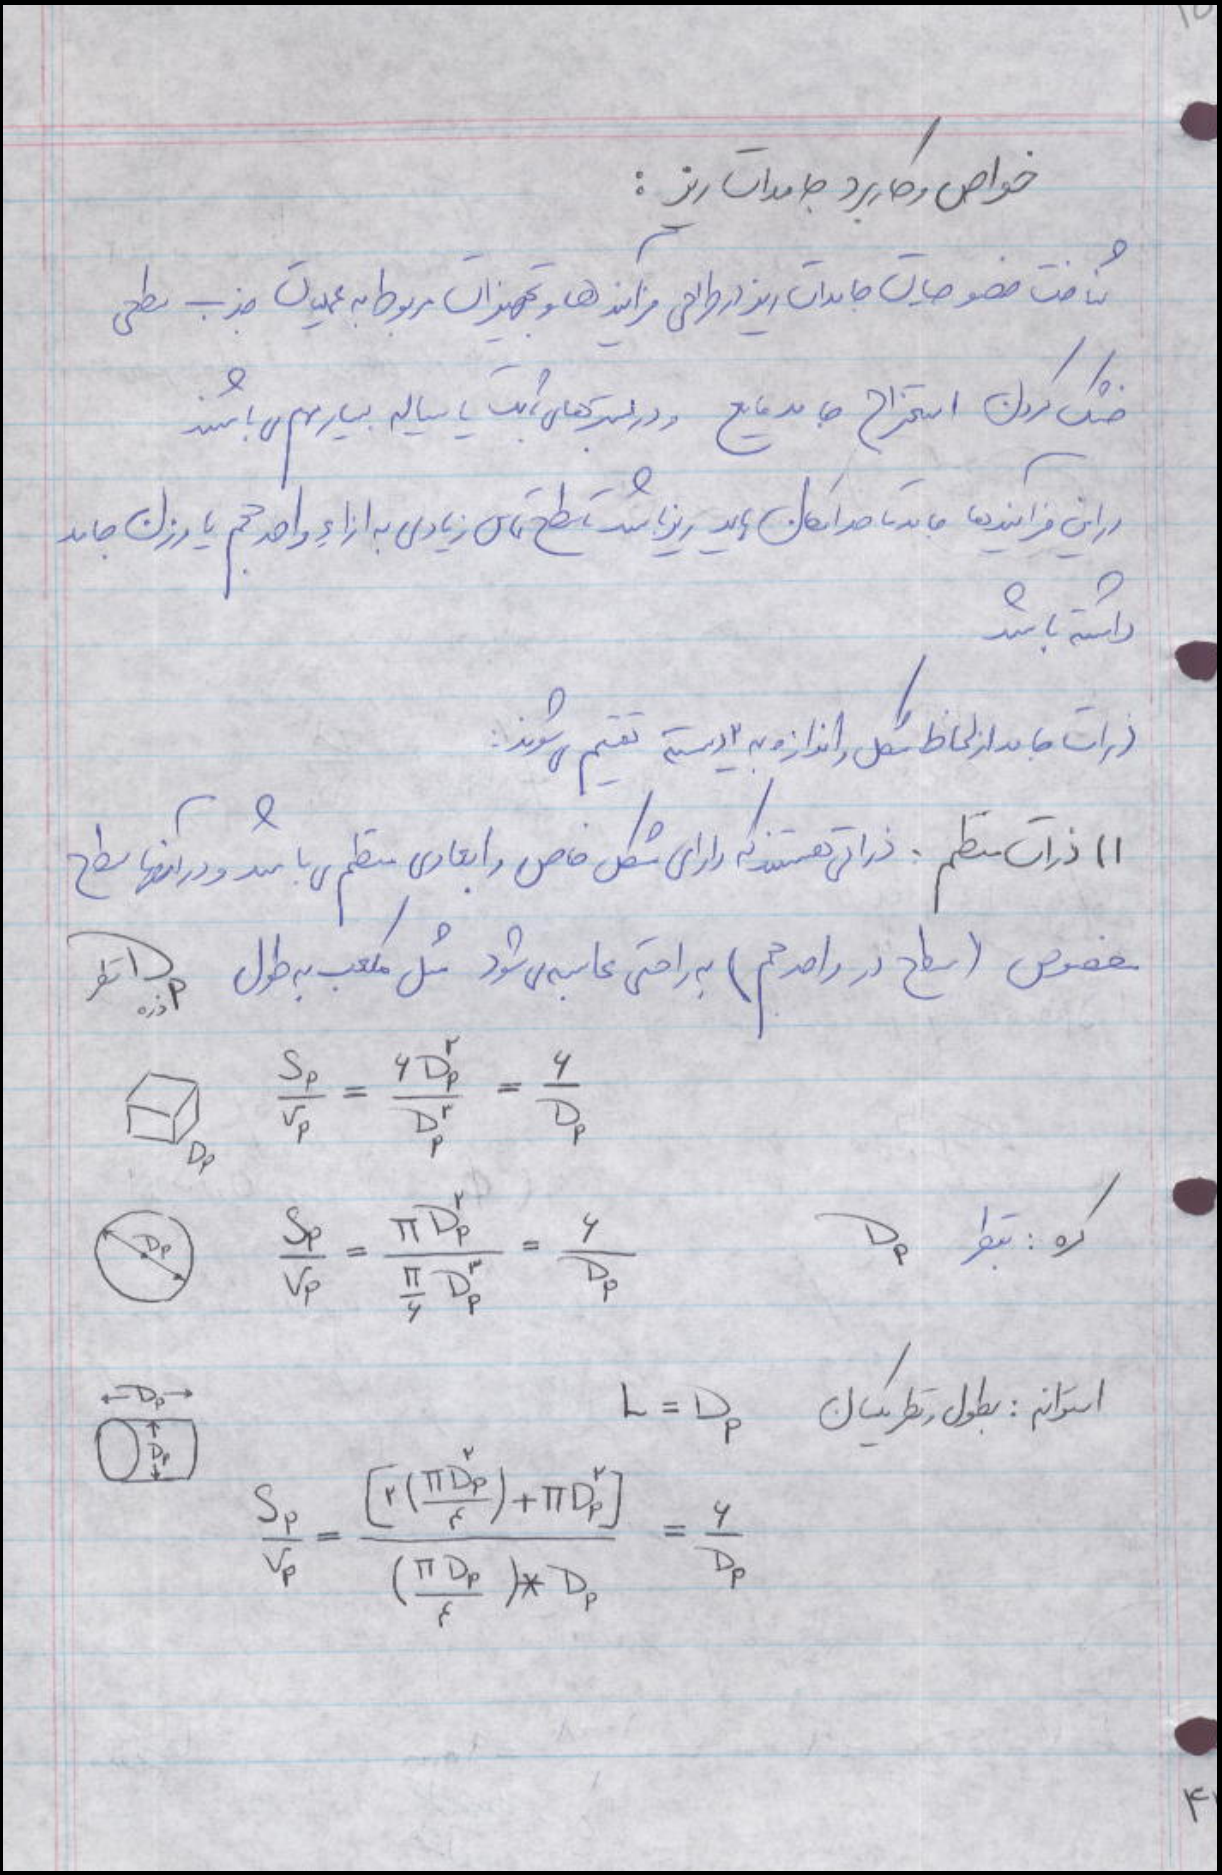 خواص و کاربرد جامدات ریز :
شناخت خصوصیات جامدات ریز در طراحی فرآیندها و تجهیزات مربوط به عملیات جذب سطحی
خشک کردن استخراج جامد مایع و در بسترهای ثابت یا سیاله بسیار مهم می باشند
در این فرآیندها جامد تا حد امکان باید ریز باشد تا سطح تماس زیادی به ازاء واحد حجم یا وزن جامد
داشته باشد
ذرات جامد از لحاظ شکل و اندازه به ۲ دسته تقسیم می شوند:
۱) ذرات منظم : ذراتی هستند که دارای شکل خاص و ابعادی منظم می باشد و در آنها سطح
مخصوص (سطح در واحد حجم) به راحتی محاسبه می شود مثل مکعب به طول Dp قطر ذره
Dp Sp/Vp = ۶Dp^۲/Dp^۳ = ۶/Dp
کره : بقطر Dp
Dp Sp/Vp = πDp^۲ / (π/۶ Dp^۳) = ۶/Dp
استوانه : بطول و قطر یکسان L = Dp
Dp
Dp
Sp/Vp = [۲(πDp^۲/۴) + πDp^۲] / (πDp/۴) * Dp = ۶/Dp